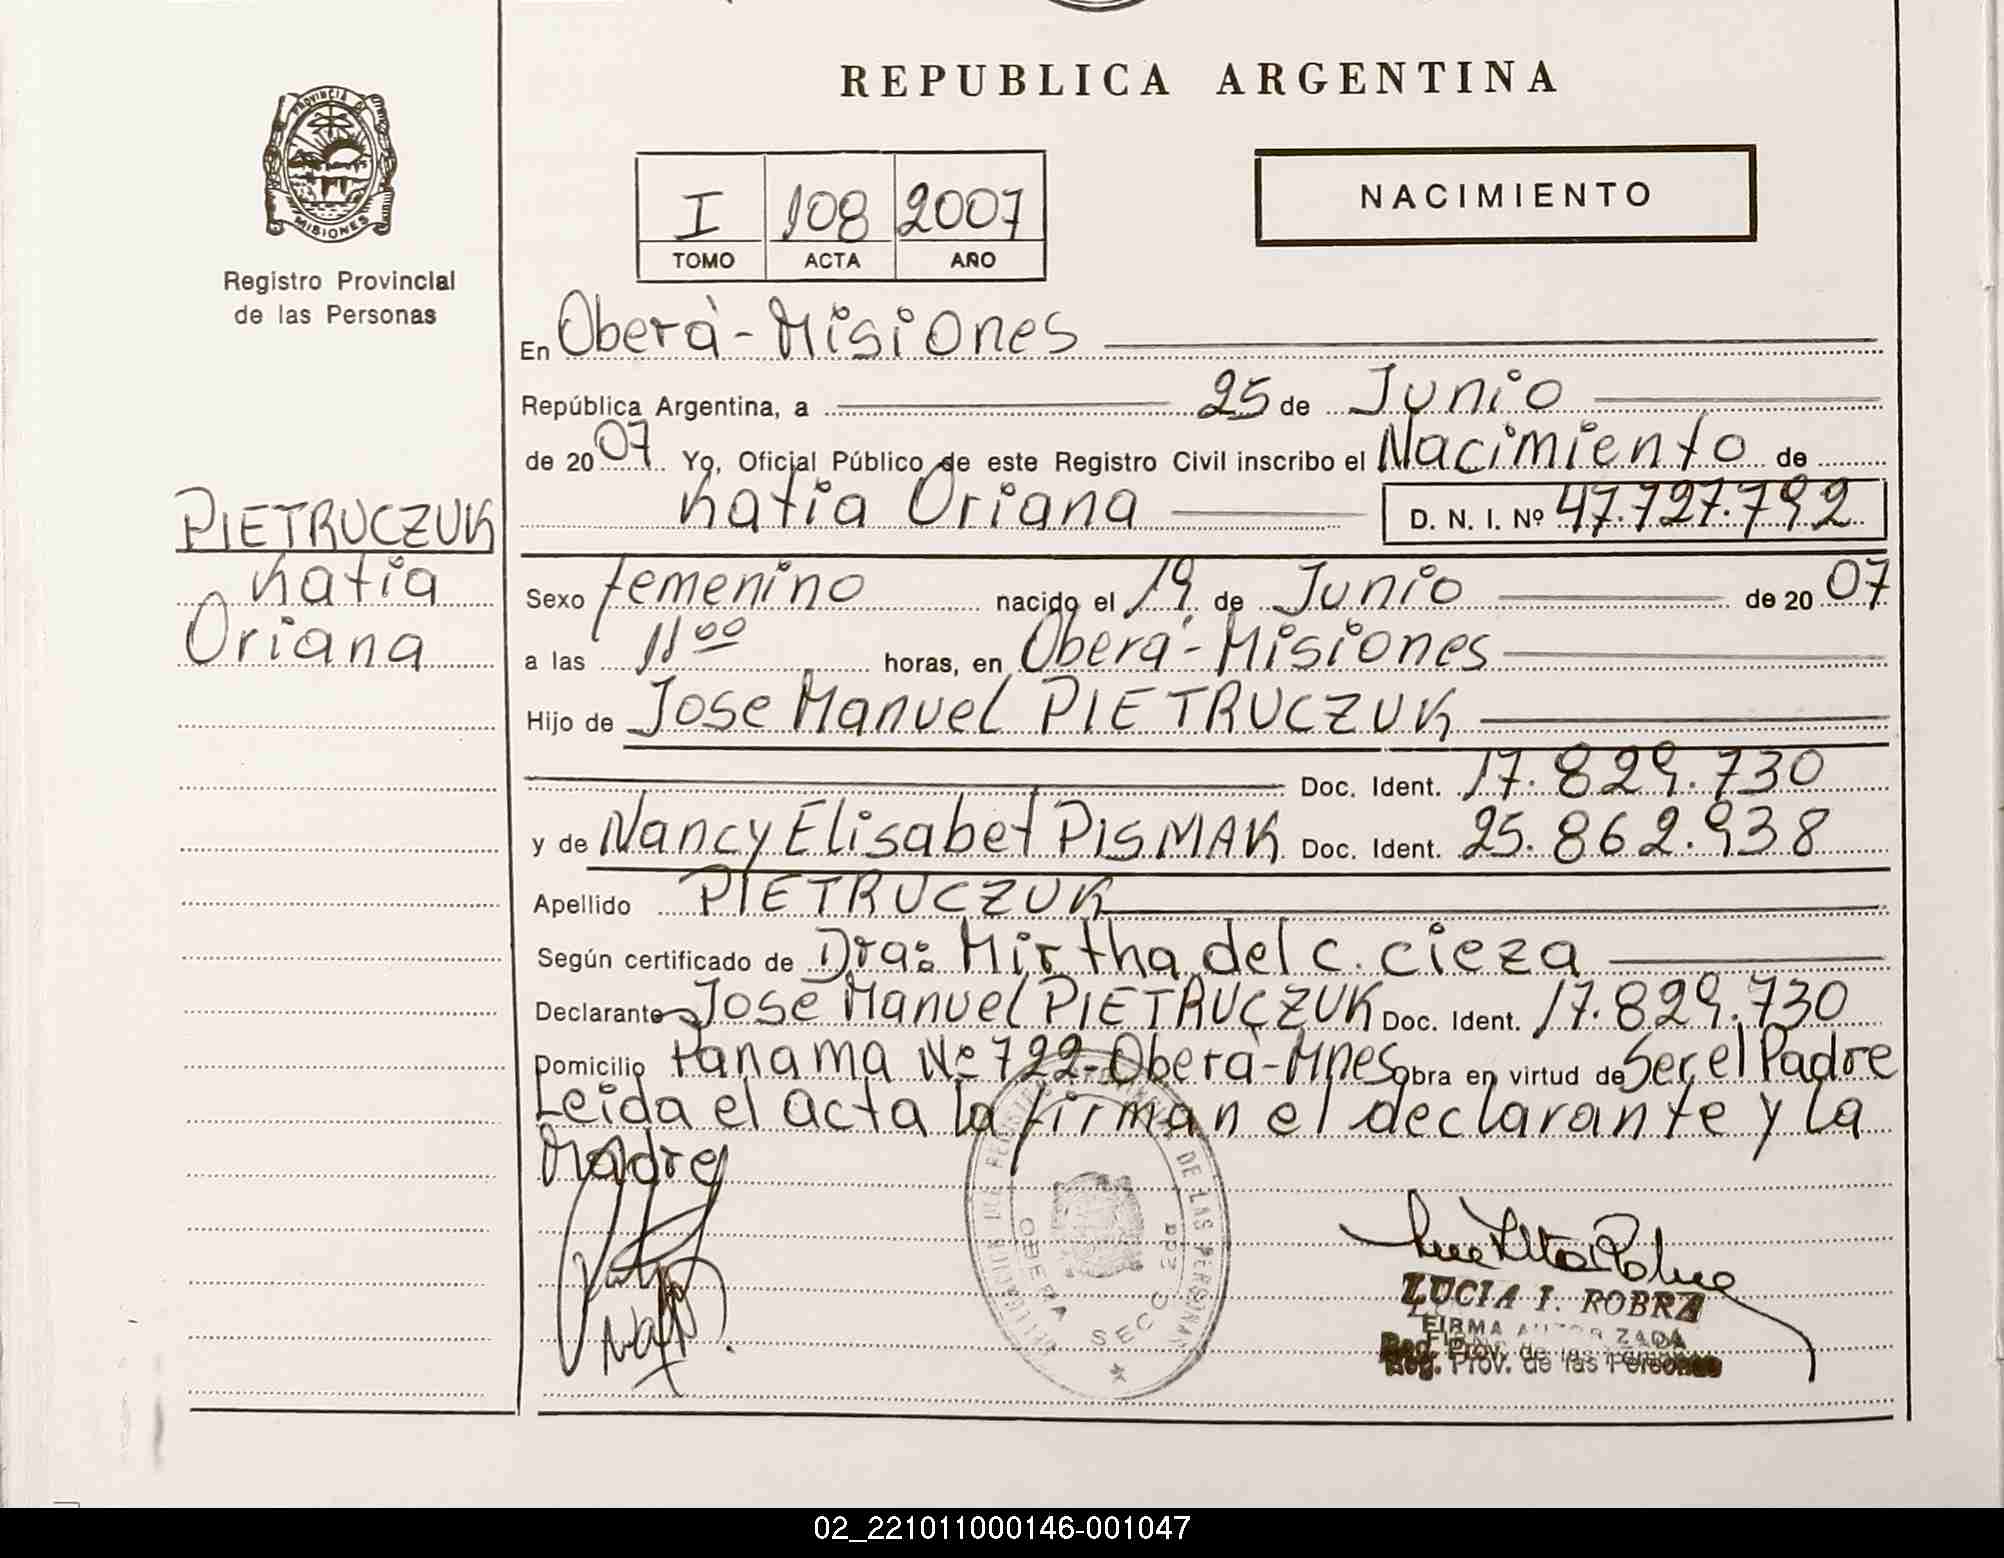 REPUBLICA ARGENTINA
PROVINCIA D
MISIONES
Registro Provincial
de las Personas
NACIMIENTO
I 108 2007
TOMO ACTA AÑO
En Oberà - Misiones
República Argentina, a 25 de Junio
de 2007 Yo, Oficial Público de este Registro Civil inscribo el Nacimiento de
Katia Oriana D. N. I. Nº 47.727.792
PIETRUCZUK
Katia
Oriana
Sexo femenino nacido el 19 de Junio de 2007
a las 11 00 horas, en Oberá - Misiones
Hijo de Jose Manuel PIETRUCZUK
Doc. Ident. 17.829.730
y de Nancy Elisabet PISMAK Doc. Ident. 25.862.938
Apellido PIETRUCZUK
Según certificado de Dra: Mirtha del C. Cieza
Declarante José Manuel PIETRUCZUK Doc. Ident. 17.829.730
Domicilio Panama Nº 722-Oberà-Mnes Obra en virtud de Ser el Padre
Leida el acta la firman el declarante y la
Madre
DE LAS PERSONAS
OBERA SECC
LUCIA I. ROBRA
FIRMA AUTORIZADA
Reg. Prov. de las Personas
02_221011000146-001047